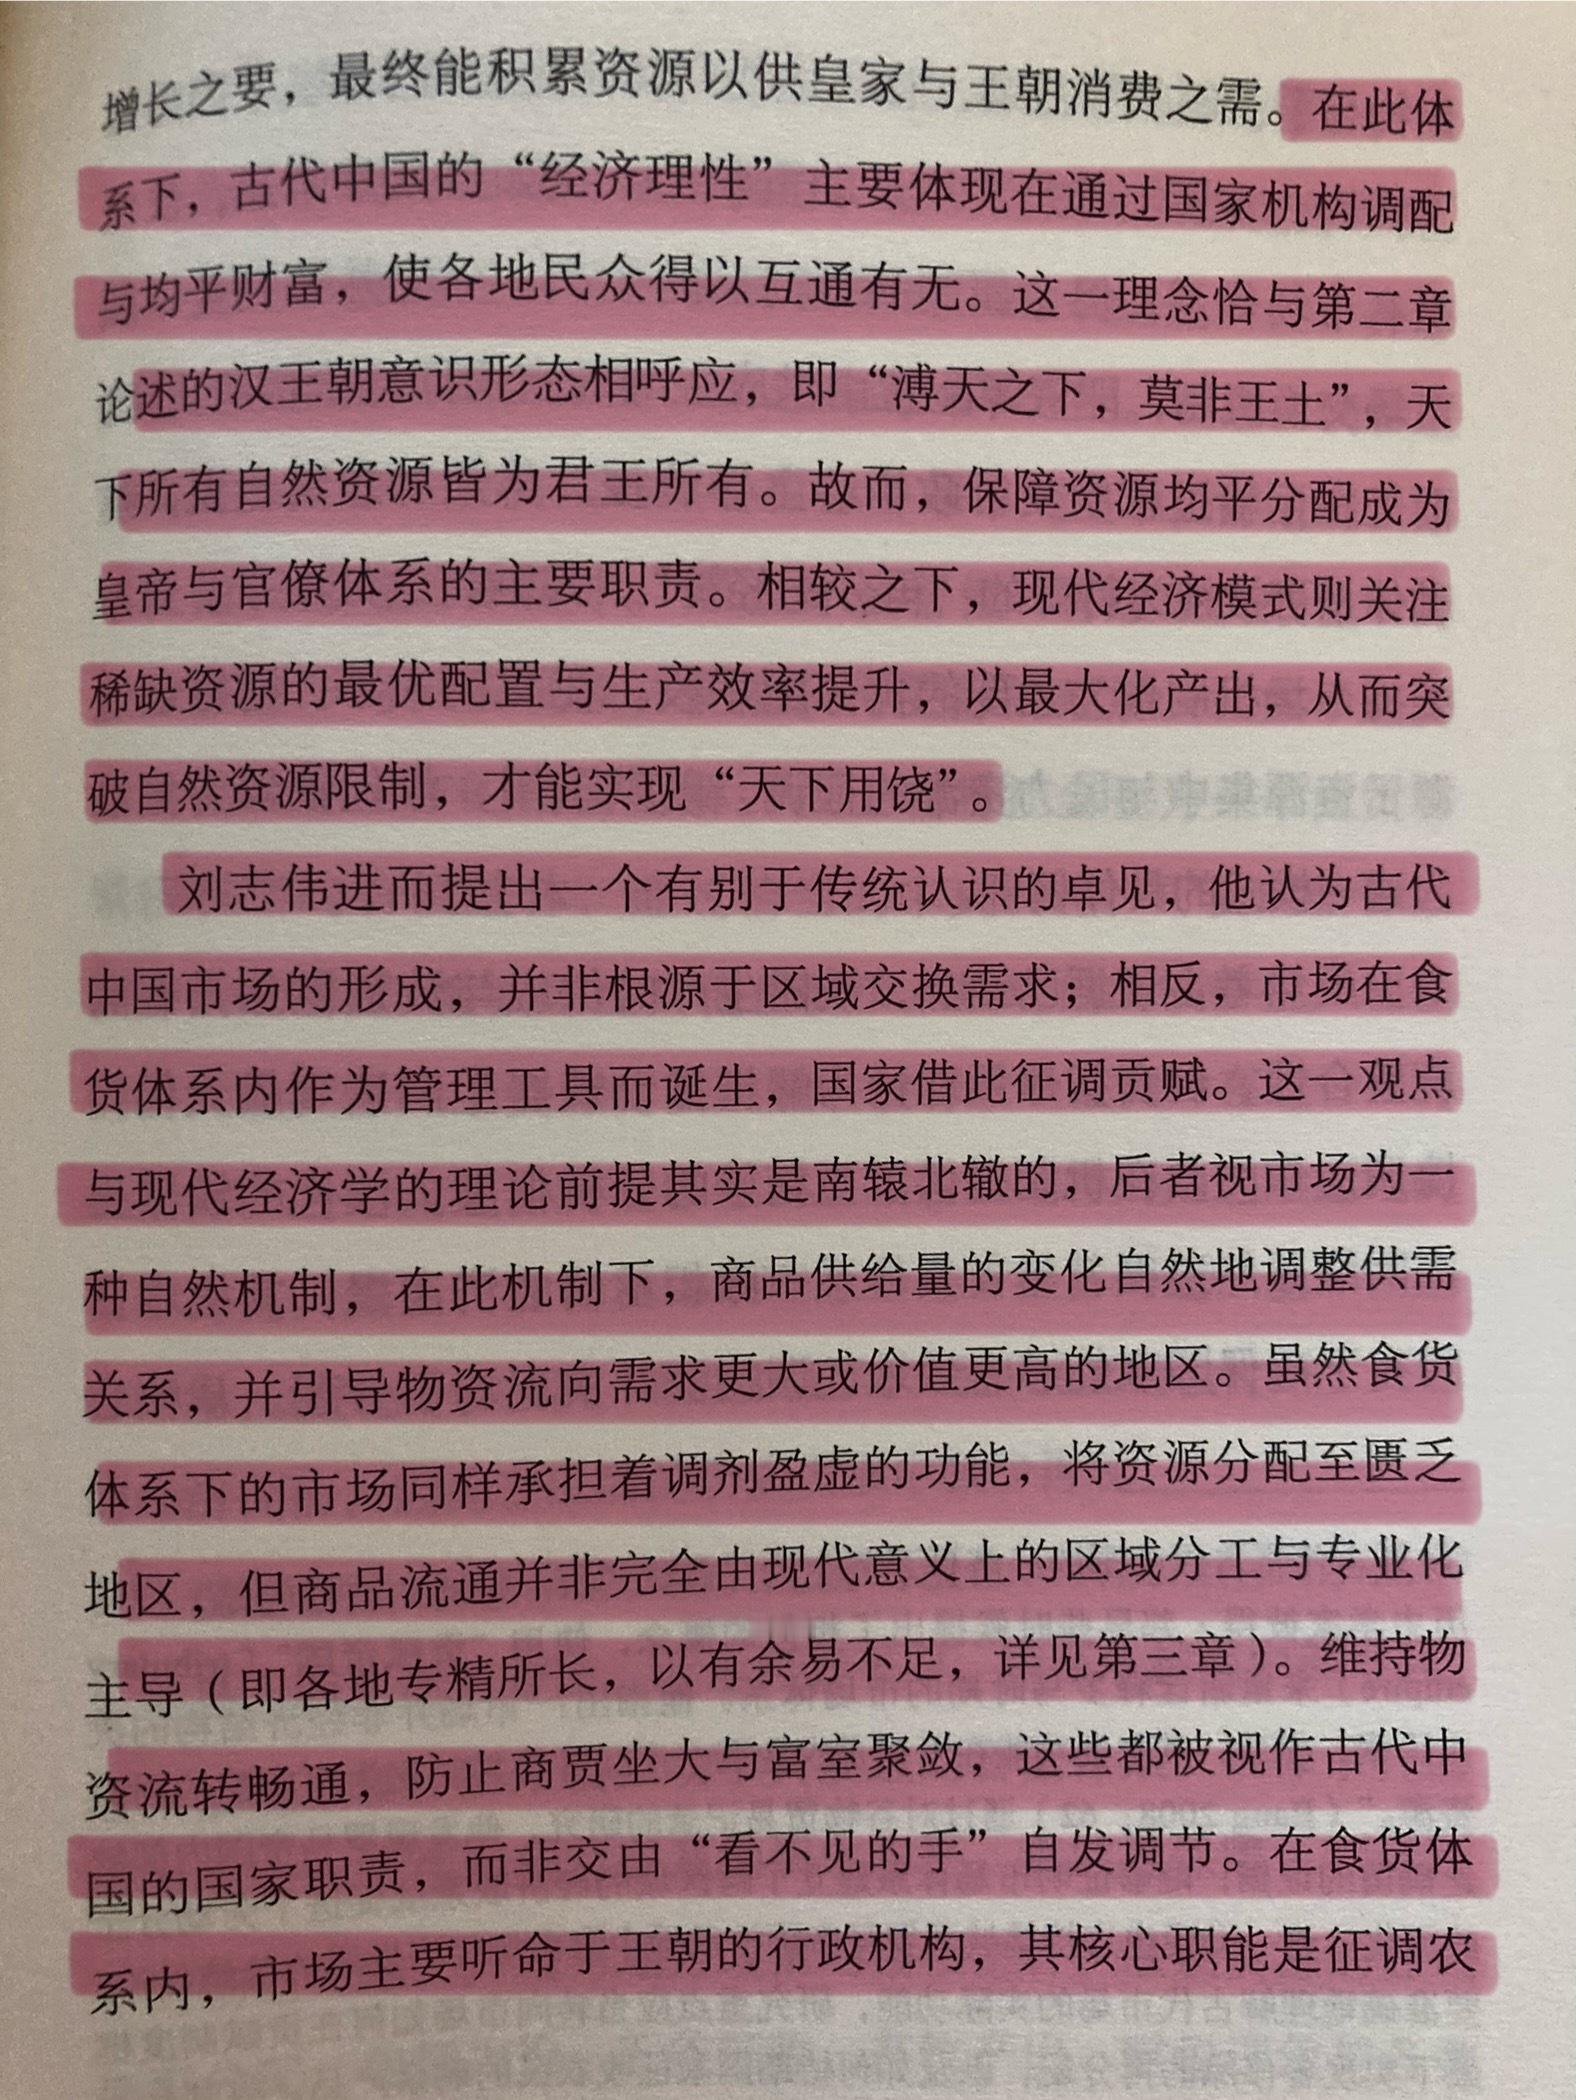 增长之要，最终能积累资源以供皇家与王朝消费之需。在此体
系下，古代中国的“经济理性”主要体现在通过国家机构调配
与均平财富，使各地民众得以互通有无。这一理念恰与第二章
论述的汉王朝意识形态相呼应，即“溥天之下，莫非王土”，天
下所有自然资源皆为君王所有。故而，保障资源均平分配成为
皇帝与官僚体系的主要职责。相较之下，现代经济模式则关注
稀缺资源的最优配置与生产效率提升，以最大化产出，从而突
破自然资源限制，才能实现“天下用饶”。
刘志伟进而提出一个有别于传统认识的卓见，他认为古代
中国市场的形成，并非根源于区域交换需求；相反，市场在食
货体系内作为管理工具而诞生，国家借此征调贡赋。这一观点
与现代经济学的理论前提其实是南辕北辙的，后者视市场为一
种自然机制，在此机制下，商品供给量的变化自然地调整供需
关系，并引导物资流向需求更大或价值更高的地区。虽然食货
体系下的市场同样承担着调剂盈虚的功能，将资源分配至匮乏
地区，但商品流通并非完全由现代意义上的区域分工与专业化
主导（即各地专精所长，以有余易不足，详见第三章）。维持物
资流转畅通，防止商贾坐大与富室聚敛，这些都被视作古代中
国的国家职责，而非交由“看不见的手”自发调节。在食货体
系内，市场主要听命于王朝的行政机构，其核心职能是征调农